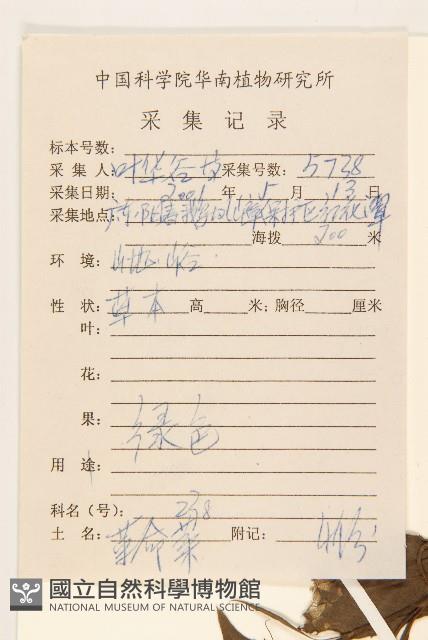 中国科学院华南植物研究所
采集记录
标本号数:
采集人: 叶华谷 采集号数: 5738
采集日期: 2001年5月13日
采集地点: 广东 保护区
海拨 200 米
环境: 山谷
性状: 草本 高 米; 胸径 厘米
叶:
花:
果: 绿色
用途:
科名(号): 238
土名: 革命菜 附记:
國立自然科學博物館
NATIONAL MUSEUM OF NATURAL SCIENCE